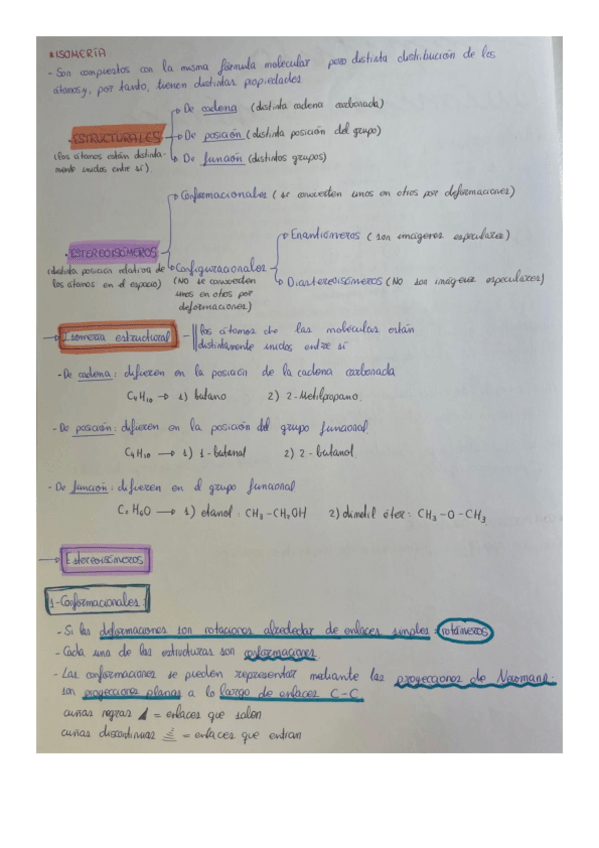 *ISOMERÍA
- Son compuestos con la misma fórmula molecular pero distinta distribución de los
átomos y, por tanto, tienen distintas propiedades
De cadena (distinta cadena carbonada)
- ESTRUCTURALES
De posición (distinta posición del grupo)
(los átomos están distinta-
mente unidos entre sí)
De función (distintos grupos)
Conformacionales (se convierten unos en otros por deformaciones)
- ESTEREOISÓMEROS
Enantiómeros (son imágenes especulares)
(distinta posición relativa de
los átomos en el espacio)
Configuracionales
(NO se convierten
unos en otros por
deformaciones)
Diastereoisómeros (NO son imágenes especulares)
Isomería estructural - los átomos de las moléculas están
distintamente unidos entre sí
- De cadena: difieren en la posición de la cadena carbonada
C4H10 → 1) butano 2) 2-Metilpropano.
- De posición: difieren en la posición del grupo funcional.
C4H10 → 1) 1-butanol 2) 2-butanol.
- De función: difieren en el grupo funcional
C2H6O → 1) etanol: CH3-CH2OH 2) dimetil éter: CH3-O-CH3
Estereoisómeros
1-Conformacionales:
- Si las deformaciones son rotaciones alrededor de enlaces simples: rotámeros
- Cada una de las estructuras son conformaciones.
- Las conformaciones se pueden representar mediante las proyecciones de Newman:
son proyecciones planas a lo largo de enlaces C-C
cuñas negras = enlaces que salen
cuñas discontinuas = enlaces que entran